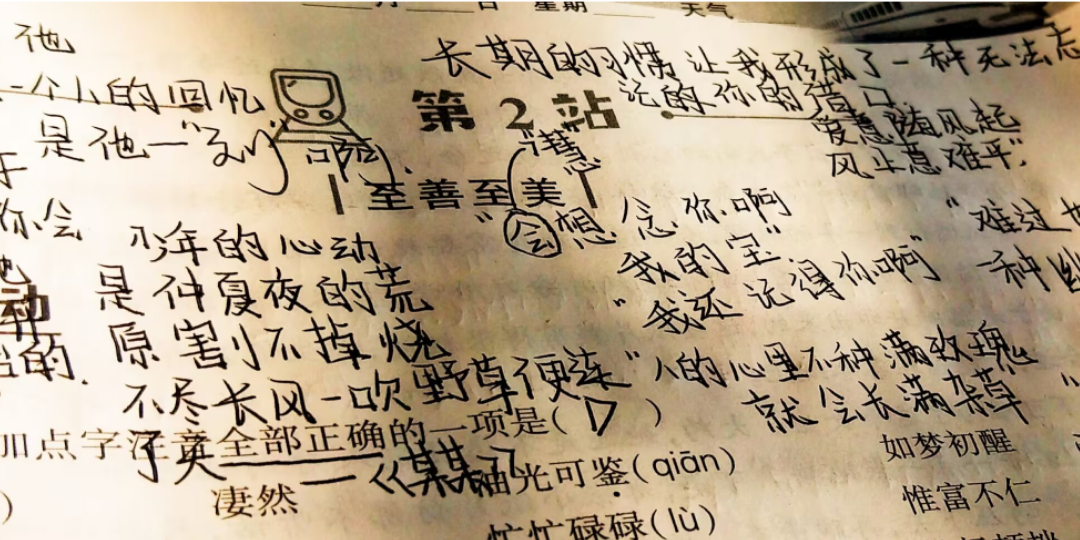 月 日 星期 天气
他
长期的习惯让我形成了一种无法忘
一个人的回忆
记的你的借口
第2站
是他一"
"爱意随风起
风止意难平".
啊
至善至美
你会
会想念你啊
"难过也
少年的心动
我的宝"
一种
是仲夏夜的荒
"我还记得你啊"
原割不掉烧
不尽长风一吹野草便连
"人的心里不种满玫瑰
就会长满杂草
加点字注音全部正确的一项是( )
了天——《某某》
油光可鉴(qiān)
如梦初醒
凄然
惟富不仁
忙忙碌碌(lù)